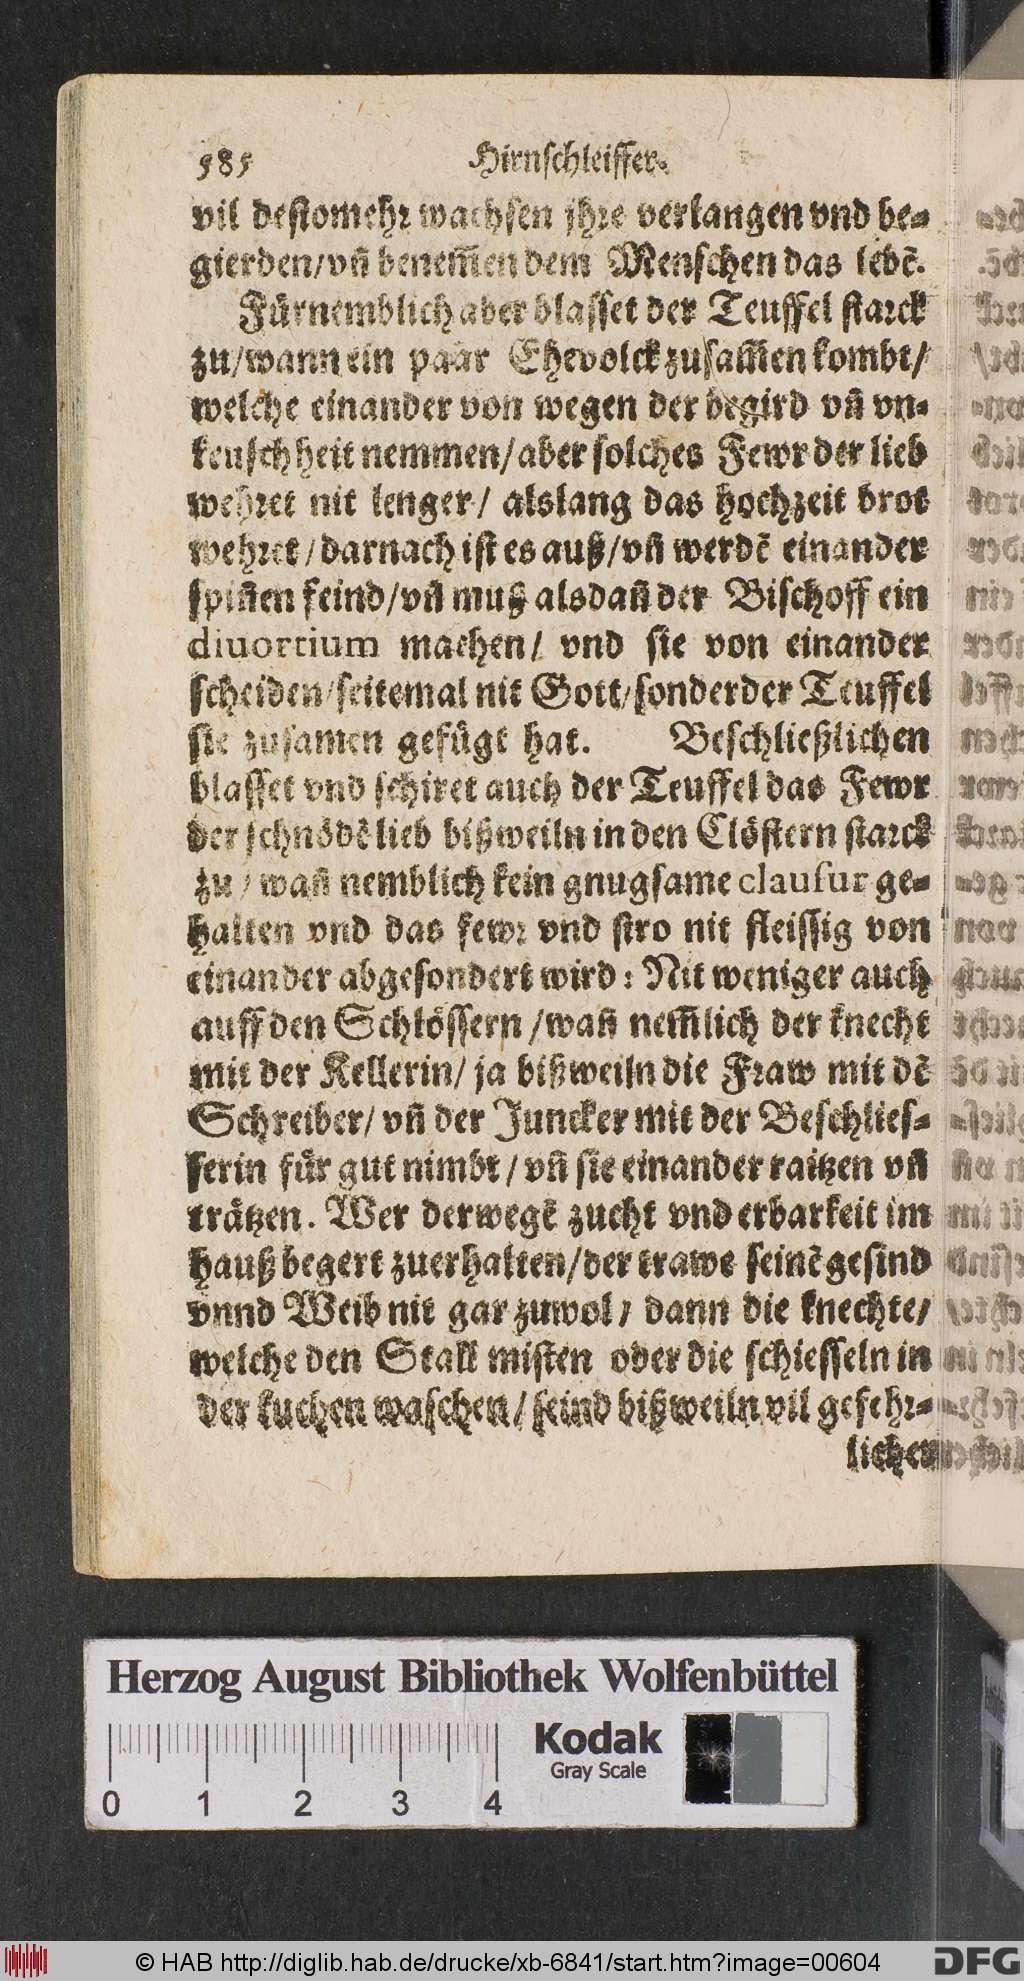 585 Hirnschleiffer.
vil destomehr wachsen jhre verlangen vnd be-
gierden/vñ benem̃en dem Menschen das lebē.
Fürnemblich aber blasset der Teuffel starck
zu/wann ein paar Ehevolck zusam̃en kombt/
welche einander von wegen der begird vñ vn-
keuschheit nemmen/aber solches Fewr der lieb
wehret nit lenger/ alslang das hochzeit brot
wehret/darnach ist es auß/vñ werdē einander
spiñen feind/vñ muß alsdañ der Bischoff ein
diuortium machen/ vnd sie von einander
scheiden/seitemal nit Gott/sonder der Teuffel
sie zusamen gefügt hat. Beschließlichen
blasset vnd schiret auch der Teuffel das Fewr
der schnödē lieb bißweiln in den Clöstern starck
zu/wañ nemblich kein gnugsame clausur ge-
halten vnd das fewr vnd stro nit fleissig von
einander abgesondert wird: Nit weniger auch
auff den Schlössern/wañ nem̃lich der knecht
mit der Kellerin/ ja bißweiln die Fraw mit dē
Schreiber/ vñ der Juncker mit der Beschlies-
serin für gut nimbt/vñ sie einander raitzen vñ
trätzen. Wer derwegē zucht vnd erbarkeit im
hauß begert zuerhalten/der trawe seinē gesind
vnnd Weib nit gar zuwol/ dann die knechte/
welche den Stall misten oder die schiesseln in
der kuchen waschen/seind bißweiln vil gefehr-
licher
Herzog August Bibliothek Wolfenbüttel
Kodak
Gray Scale
0 1 2 3 4
© HAB http://diglib.hab.de/drucke/xb-6841/start.htm?image=00604
DFG